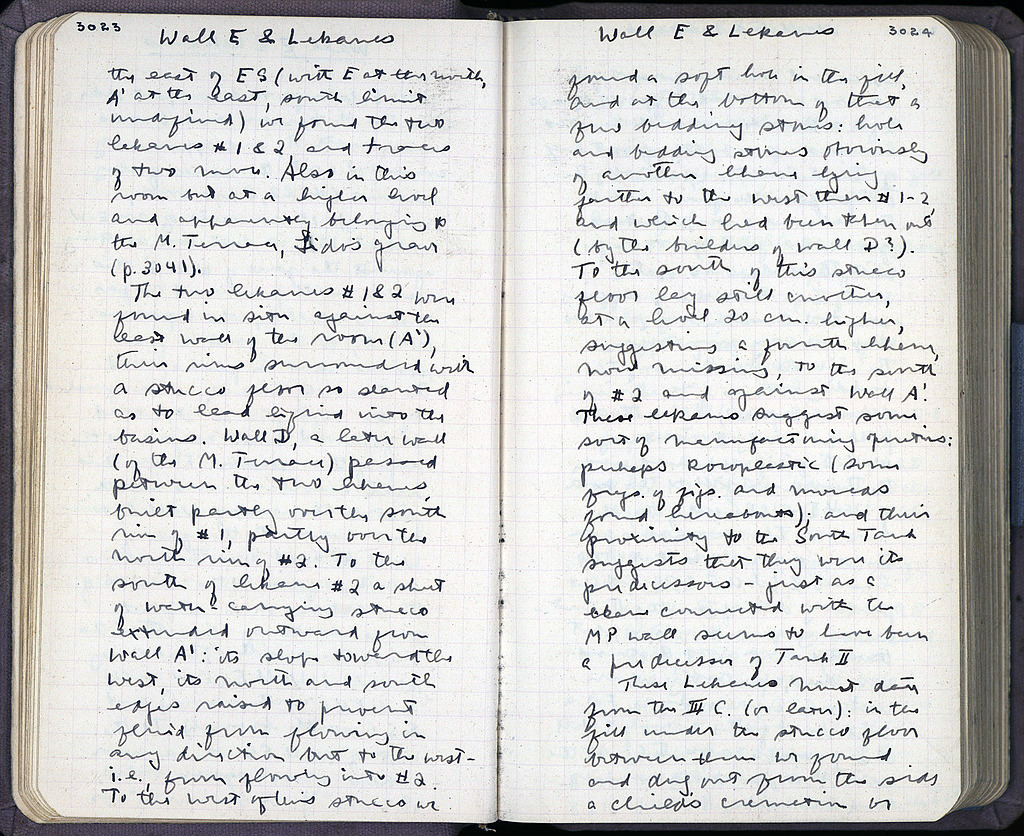 3023
Wall E & Lekanes
the east of ES (with E at the north,
A' at the east, south limit
undefined) we found the two
lekanes #1 & 2 and traces
of two more. Also in this
room but at a higher level
and apparently belonging to
the M. Terrace, Fido's grave
(p. 3041).
The two lekanes #1 & 2 were
found in situ against the
east wall of the room (A'),
their rims surrounded with
a stucco floor so slanted
as to lead liquid into the
basins. Wall D, a later wall
(of the M. Terrace) passed
between the two lekanes,
built partly over the south
rim of #1, partly over the
north rim of #2. To the
south of lekane #2 a sheet
of water-carrying stucco
extended outward from
Wall A': its slope toward the
west, its north and south
edges raised to prevent
fluid from flowing in
any direction but to the west -
i.e., from flowing into #2.
To the west of this stucco we
3024
Wall E & Lekanes
found a soft hole in the fill,
and at the bottom of that a
few bedding stones: hole
and bedding stones obviously
of another lekane lying
farther to the west than #1-2,
and which had been thrown out
(by the builders of Wall D?).
To the south of this stucco
floor lay still another,
at a level 20 cm. higher,
suggesting a fourth lekane,
now missing, to the south
of #2 and against Wall A'.
These lekanes suggest some
sort of manufacturing
perhaps koroplastic (some
frags. of figs. and moulds
found hereabouts); and their
proximity to the South Tank
suggests that they were its
predecessors - just as a
lekane connected with the
MP wall seems to have been
a predecessor of Tank II
These Lekanes must date
from the III C. (or later): in the
fill under the stucco floor
between them we found
and dug out from the side
a child's cremation or